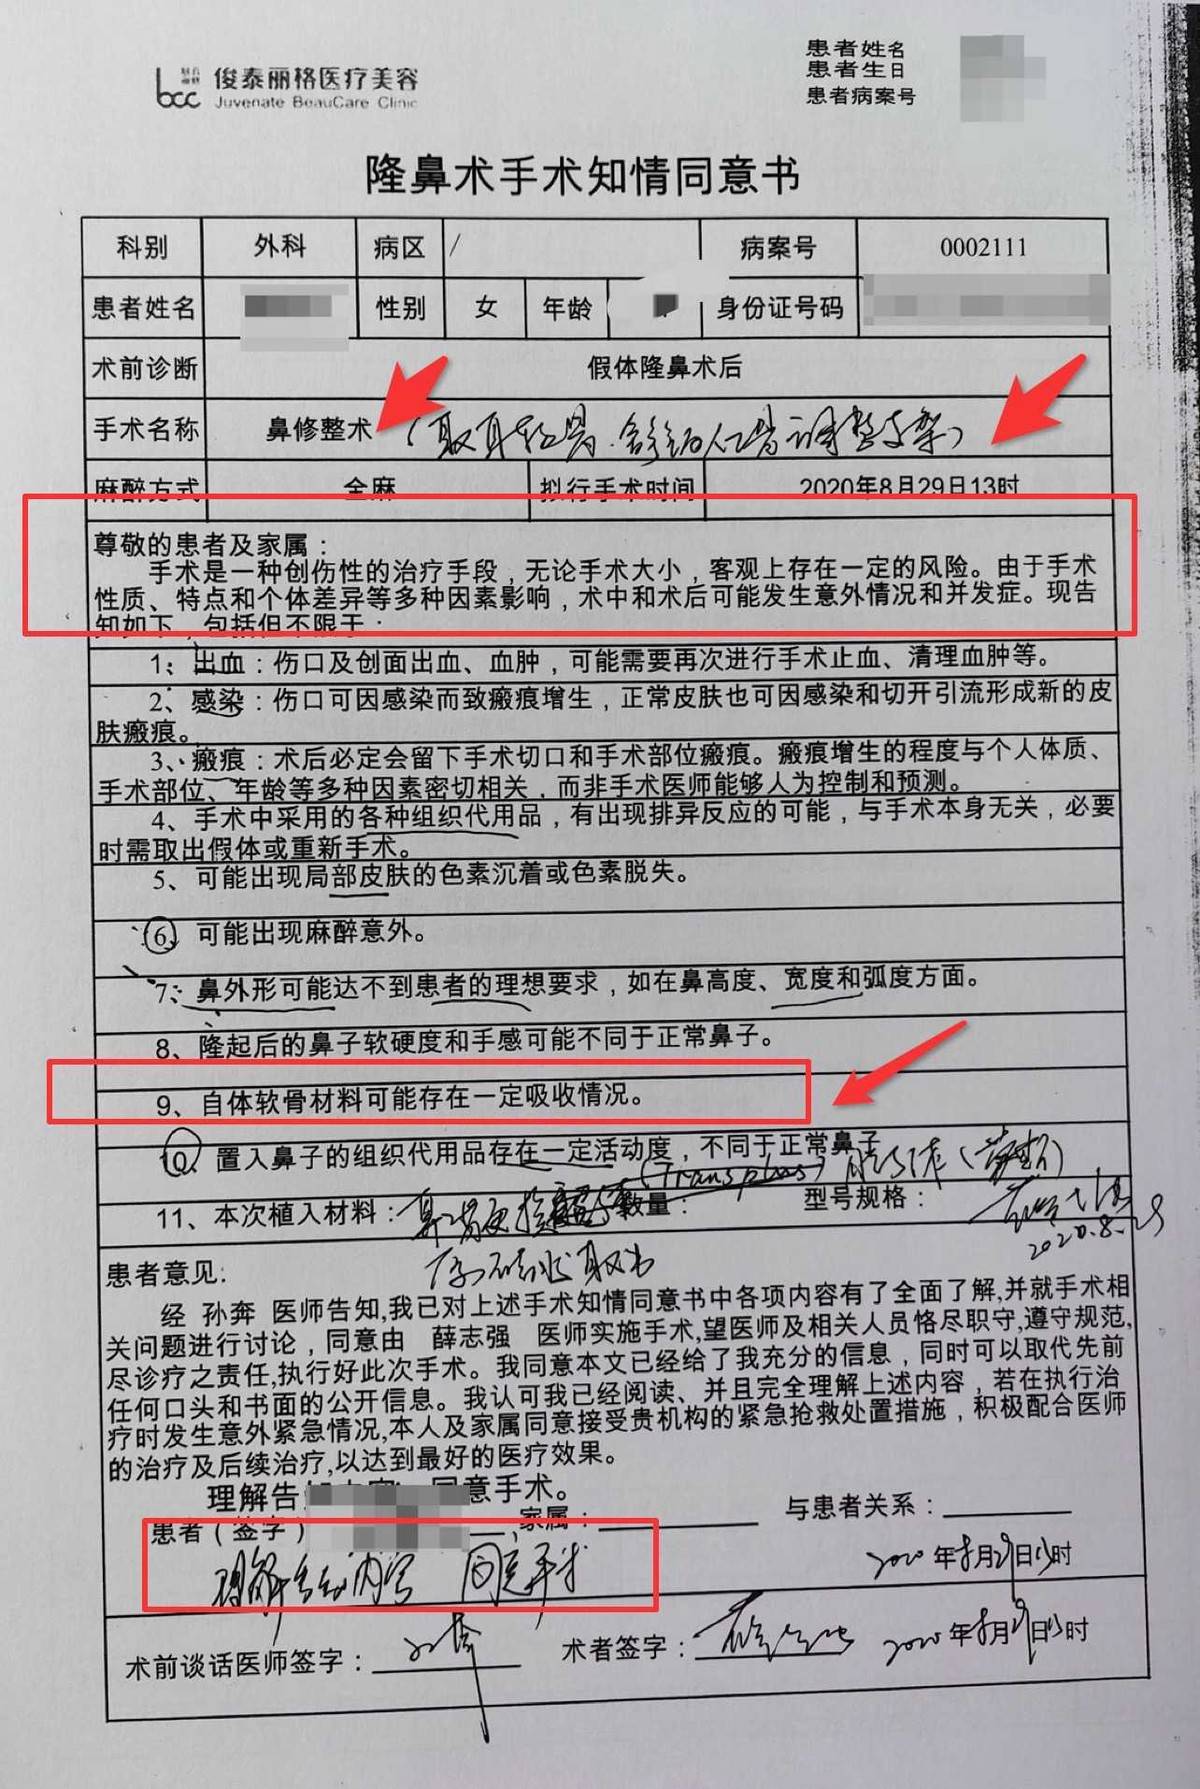 患者姓名
患者生日
患者病案号
bcc 俊泰丽格医疗美容
Juvenate BeauCare Clinic
隆鼻术手术知情同意书
科别 外科 病区 / 病案号 0002111
患者姓名 性别 女 年龄 身份证号码
术前诊断 假体隆鼻术后
手术名称 鼻修整术 (取耳软骨
麻醉方式 全麻 拟行手术时间 2020年8月29日13时
尊敬的患者及家属：
手术是一种创伤性的治疗手段，无论手术大小，客观上存在一定的风险。由于手术
性质、特点和个体差异等多种因素影响，术中和术后可能发生意外情况和并发症。现告
知如下，包括但不限于：
1、出血：伤口及创面出血、血肿，可能需要再次进行手术止血、清理血肿等。
2、感染：伤口可因感染而致瘢痕增生，正常皮肤也可因感染和切开引流形成新的皮
肤瘢痕。
3、瘢痕：术后必定会留下手术切口和手术部位瘢痕。瘢痕增生的程度与个人体质、
手术部位、年龄等多种因素密切相关，而非手术医师能够人为控制和预测。
4、手术中采用的各种组织代用品，有出现排异反应的可能，与手术本身无关，必要
时需取出假体或重新手术。
5、可能出现局部皮肤的色素沉着或色素脱失。
6、可能出现麻醉意外。
7、鼻外形可能达不到患者的理想要求，如在鼻高度、宽度和弧度方面。
8、隆起后的鼻子软硬度和手感可能不同于正常鼻子。
9、自体软骨材料可能存在一定吸收情况。
10、置入鼻子的组织代用品存在一定活动度，不同于正常鼻子
11、本次植入材料： 数量： 型号规格：
2020.8.29
患者意见:
经 孙奔 医师告知,我已对上述手术知情同意书中各项内容有了全面了解,并就手术相
关问题进行讨论，同意由 薛志强 医师实施手术,望医师及相关人员恪尽职守,遵守规范,
尽诊疗之责任,执行好此次手术。我同意本文已经给了我充分的信息，同时可以取代先前
任何口头和书面的公开信息。我认可我已经阅读、并且完全理解上述内容，若在执行治
疗时发生意外紧急情况,本人及家属同意接受贵机构的紧急抢救处置措施，积极配合医师
的治疗及后续治疗,以达到最好的医疗效果。
理解告 意手术。
患者（签字） ,家属： 与患者关系：
理解告知内容 同意手术 2020年8月29日13时
术前谈话医师签字： 术者签字： 2020年8月29日13时